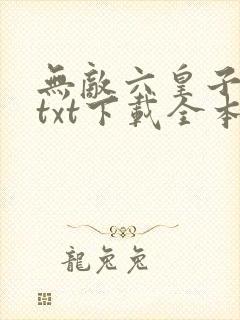 無敵六皇子
txt下載全本
龍兔兔